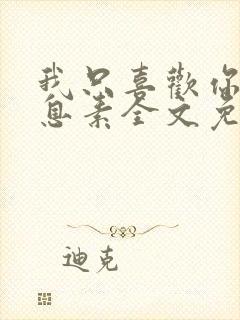 我只喜歡你
息素全文免
迪克